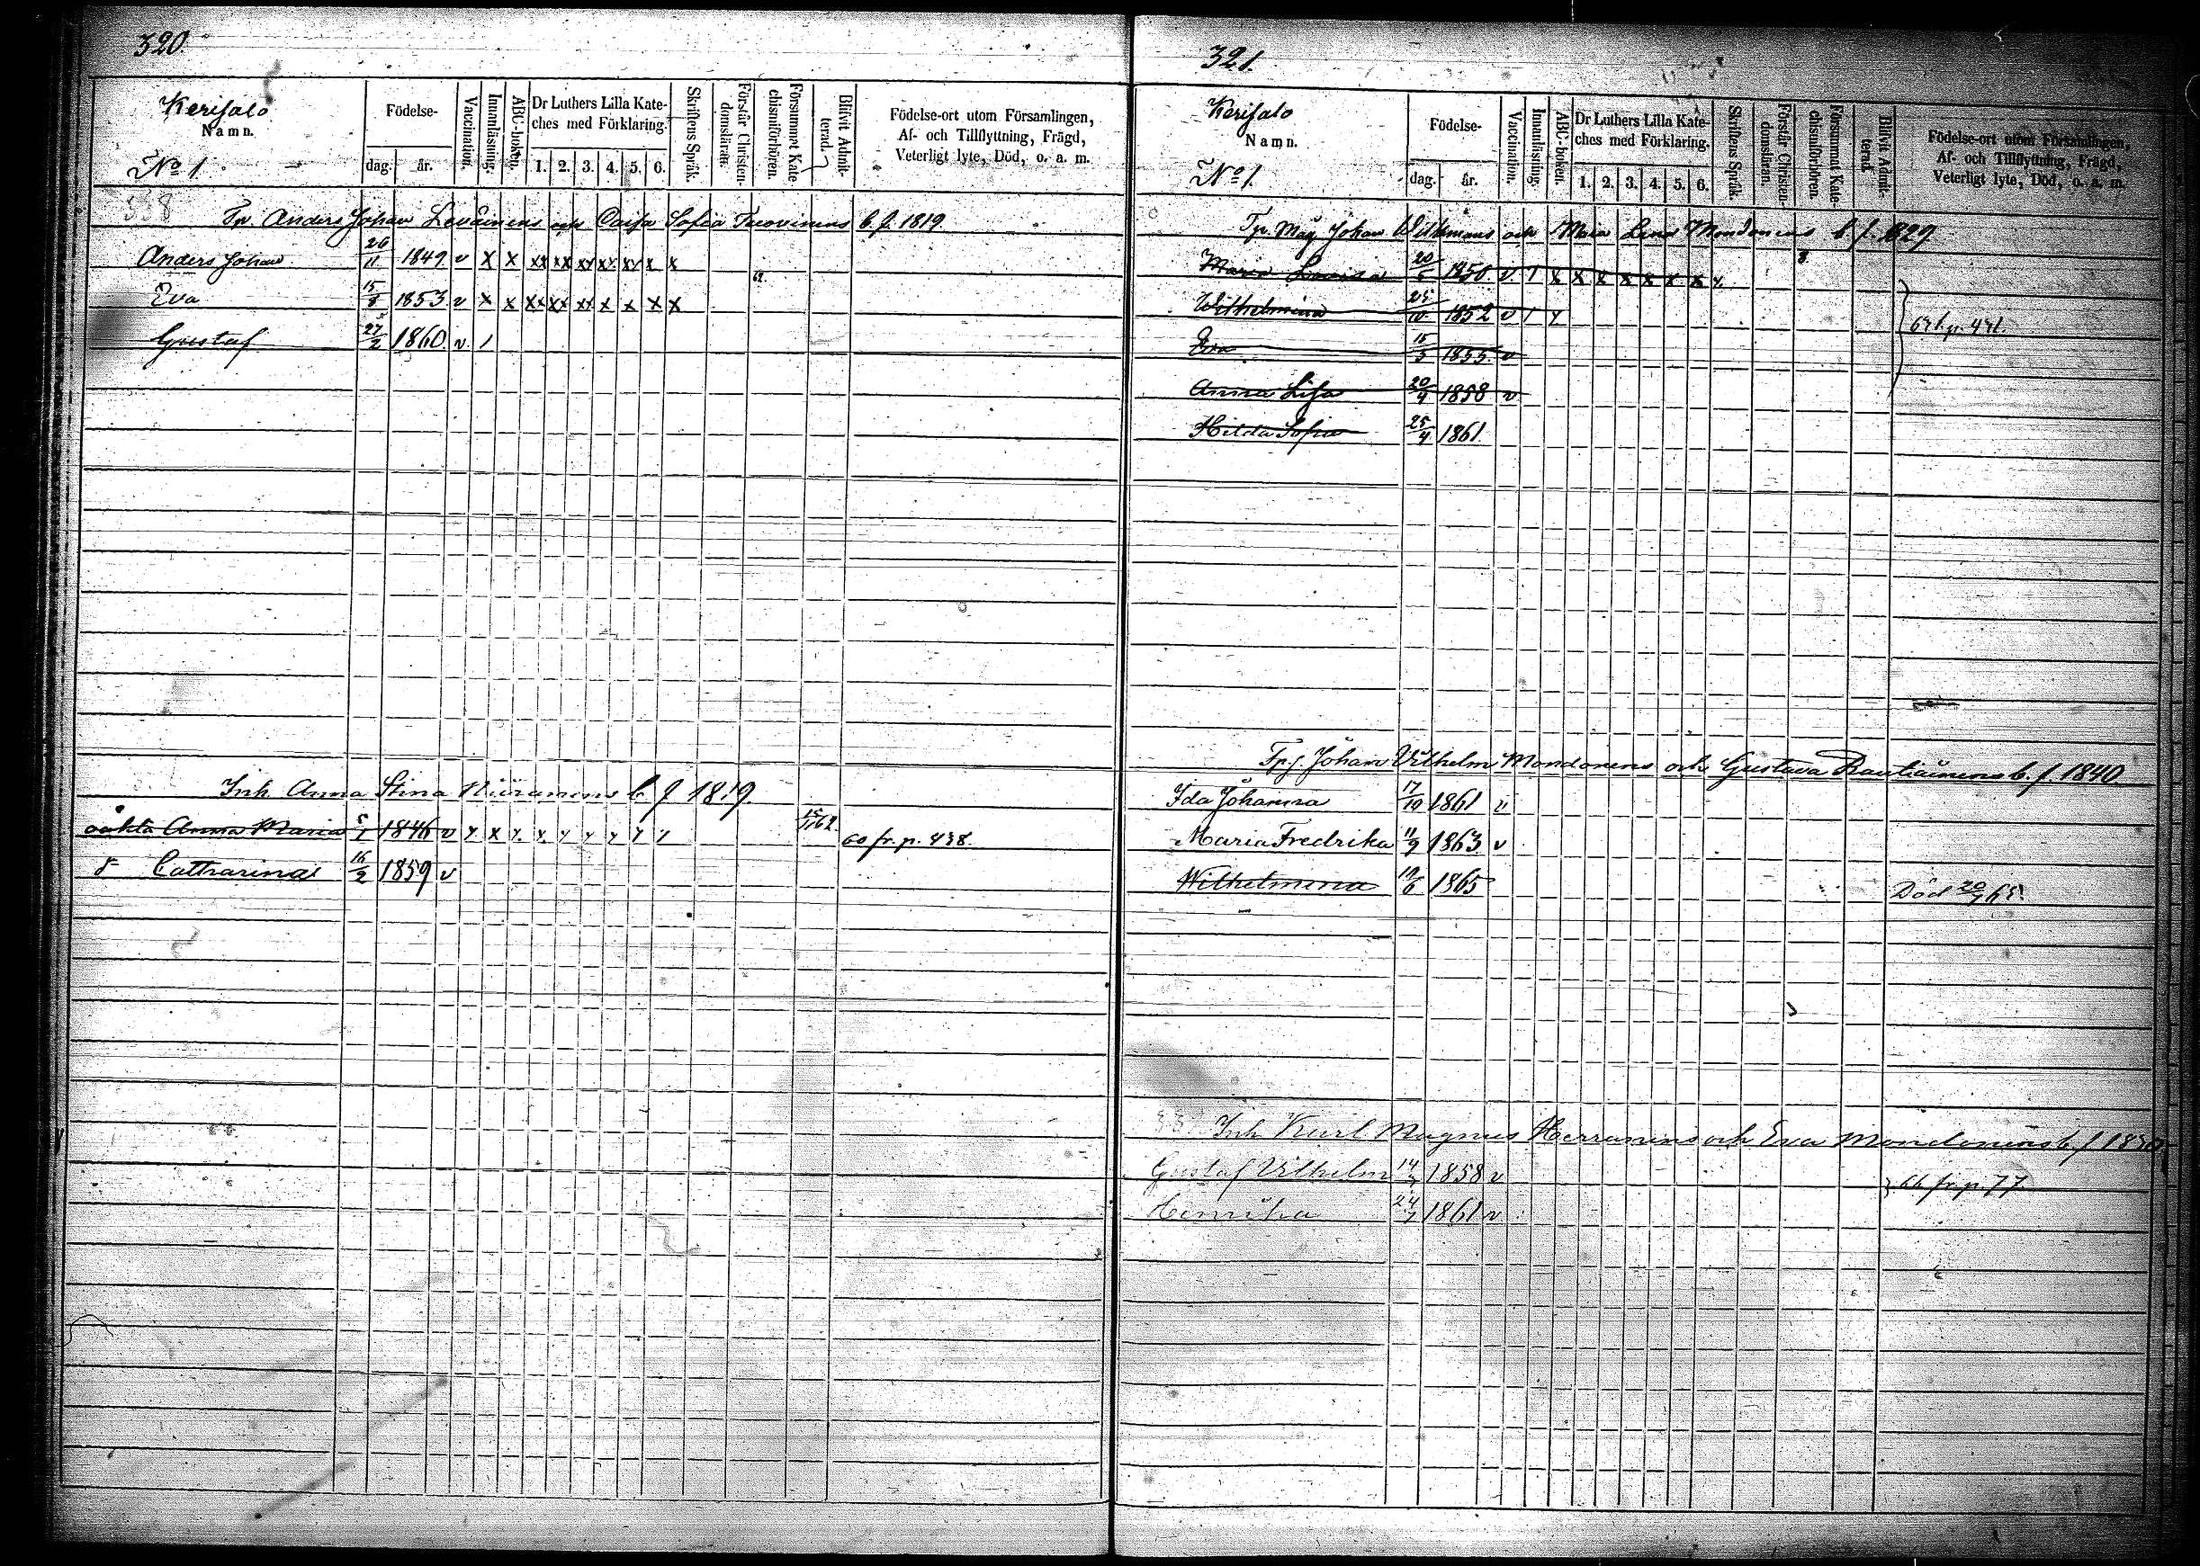 320.
Kerisalo
Namn.
No 1.
Födelse-
dag. år.
Vaccination.
Innanläsning.
ABC-boken.
Dr Luthers Lilla Kate-
ches med Förklaring.
1. 2. 3. 4. 5. 6.
Skriftens Språk.
Förstår Christen-
domslären.
Försummat Kate-
chismiförhören.
Blifvit Admit-
terad.
Födelse-ort utom Församlingen,
Af- och Tillflyttning, Frägd,
Veterligt lyte, Död, o. a. m.
338
Anders Johan Leväinens och Caisa Sofia Tuovinens b. f. 1819.
Anders Johan 26/11 1849 v x x xx xx xx xx xx x x
Eva 15/8 1853 v x x xx xx xx x x x x
Gustaf 27/2 1860 v /
Inh. Anna Stina b. f. 1819
oäkta Anna Maria 5/1 1846 v x x x x x x x x x 60 fr. p. 438.
d Catharina 16/2 1859 v
321.
Kerisalo
Namn.
No 1.
Födelse-
dag. år.
Vaccination.
Innanläsning.
ABC-boken.
Dr Luthers Lilla Kate-
ches med Förklaring.
1. 2. 3. 4. 5. 6.
Skriftens Språk.
Förstår Christen-
domsläran.
Försummat Kate-
chismiförhören.
Blifvit Admit-
terad.
Födelse-ort utom Församlingen,
Af- och Tillflyttning, Frägd,
Veterligt lyte, Död, o. a. m.
Johan Wilhmans och Maria Lena Mondonens b f. 1829
Maria Lovisa 20/5 1850 v / x x x x x x x x
Wilhelmina 25/10 1852 v / x
Eva 15/5 1855 v
Anna Lisa 20/9 1858 v
Hilda Sofia 25/4 1861
Johan Vilhelm Mondonens och Gustava Rautiainens b. f. 1840
Ida Johanna 17/10 1861 v
Maria Fredrika 11/9 1863 v
Wilhelmina 10/6 1865 Död 20/7 65.
Inh Karl Magnus Herranens och Eva Mondonens b f
Gustaf Vilhelm 1858 v 66 fr. p. 77.
Henrika 24/7 1861 v